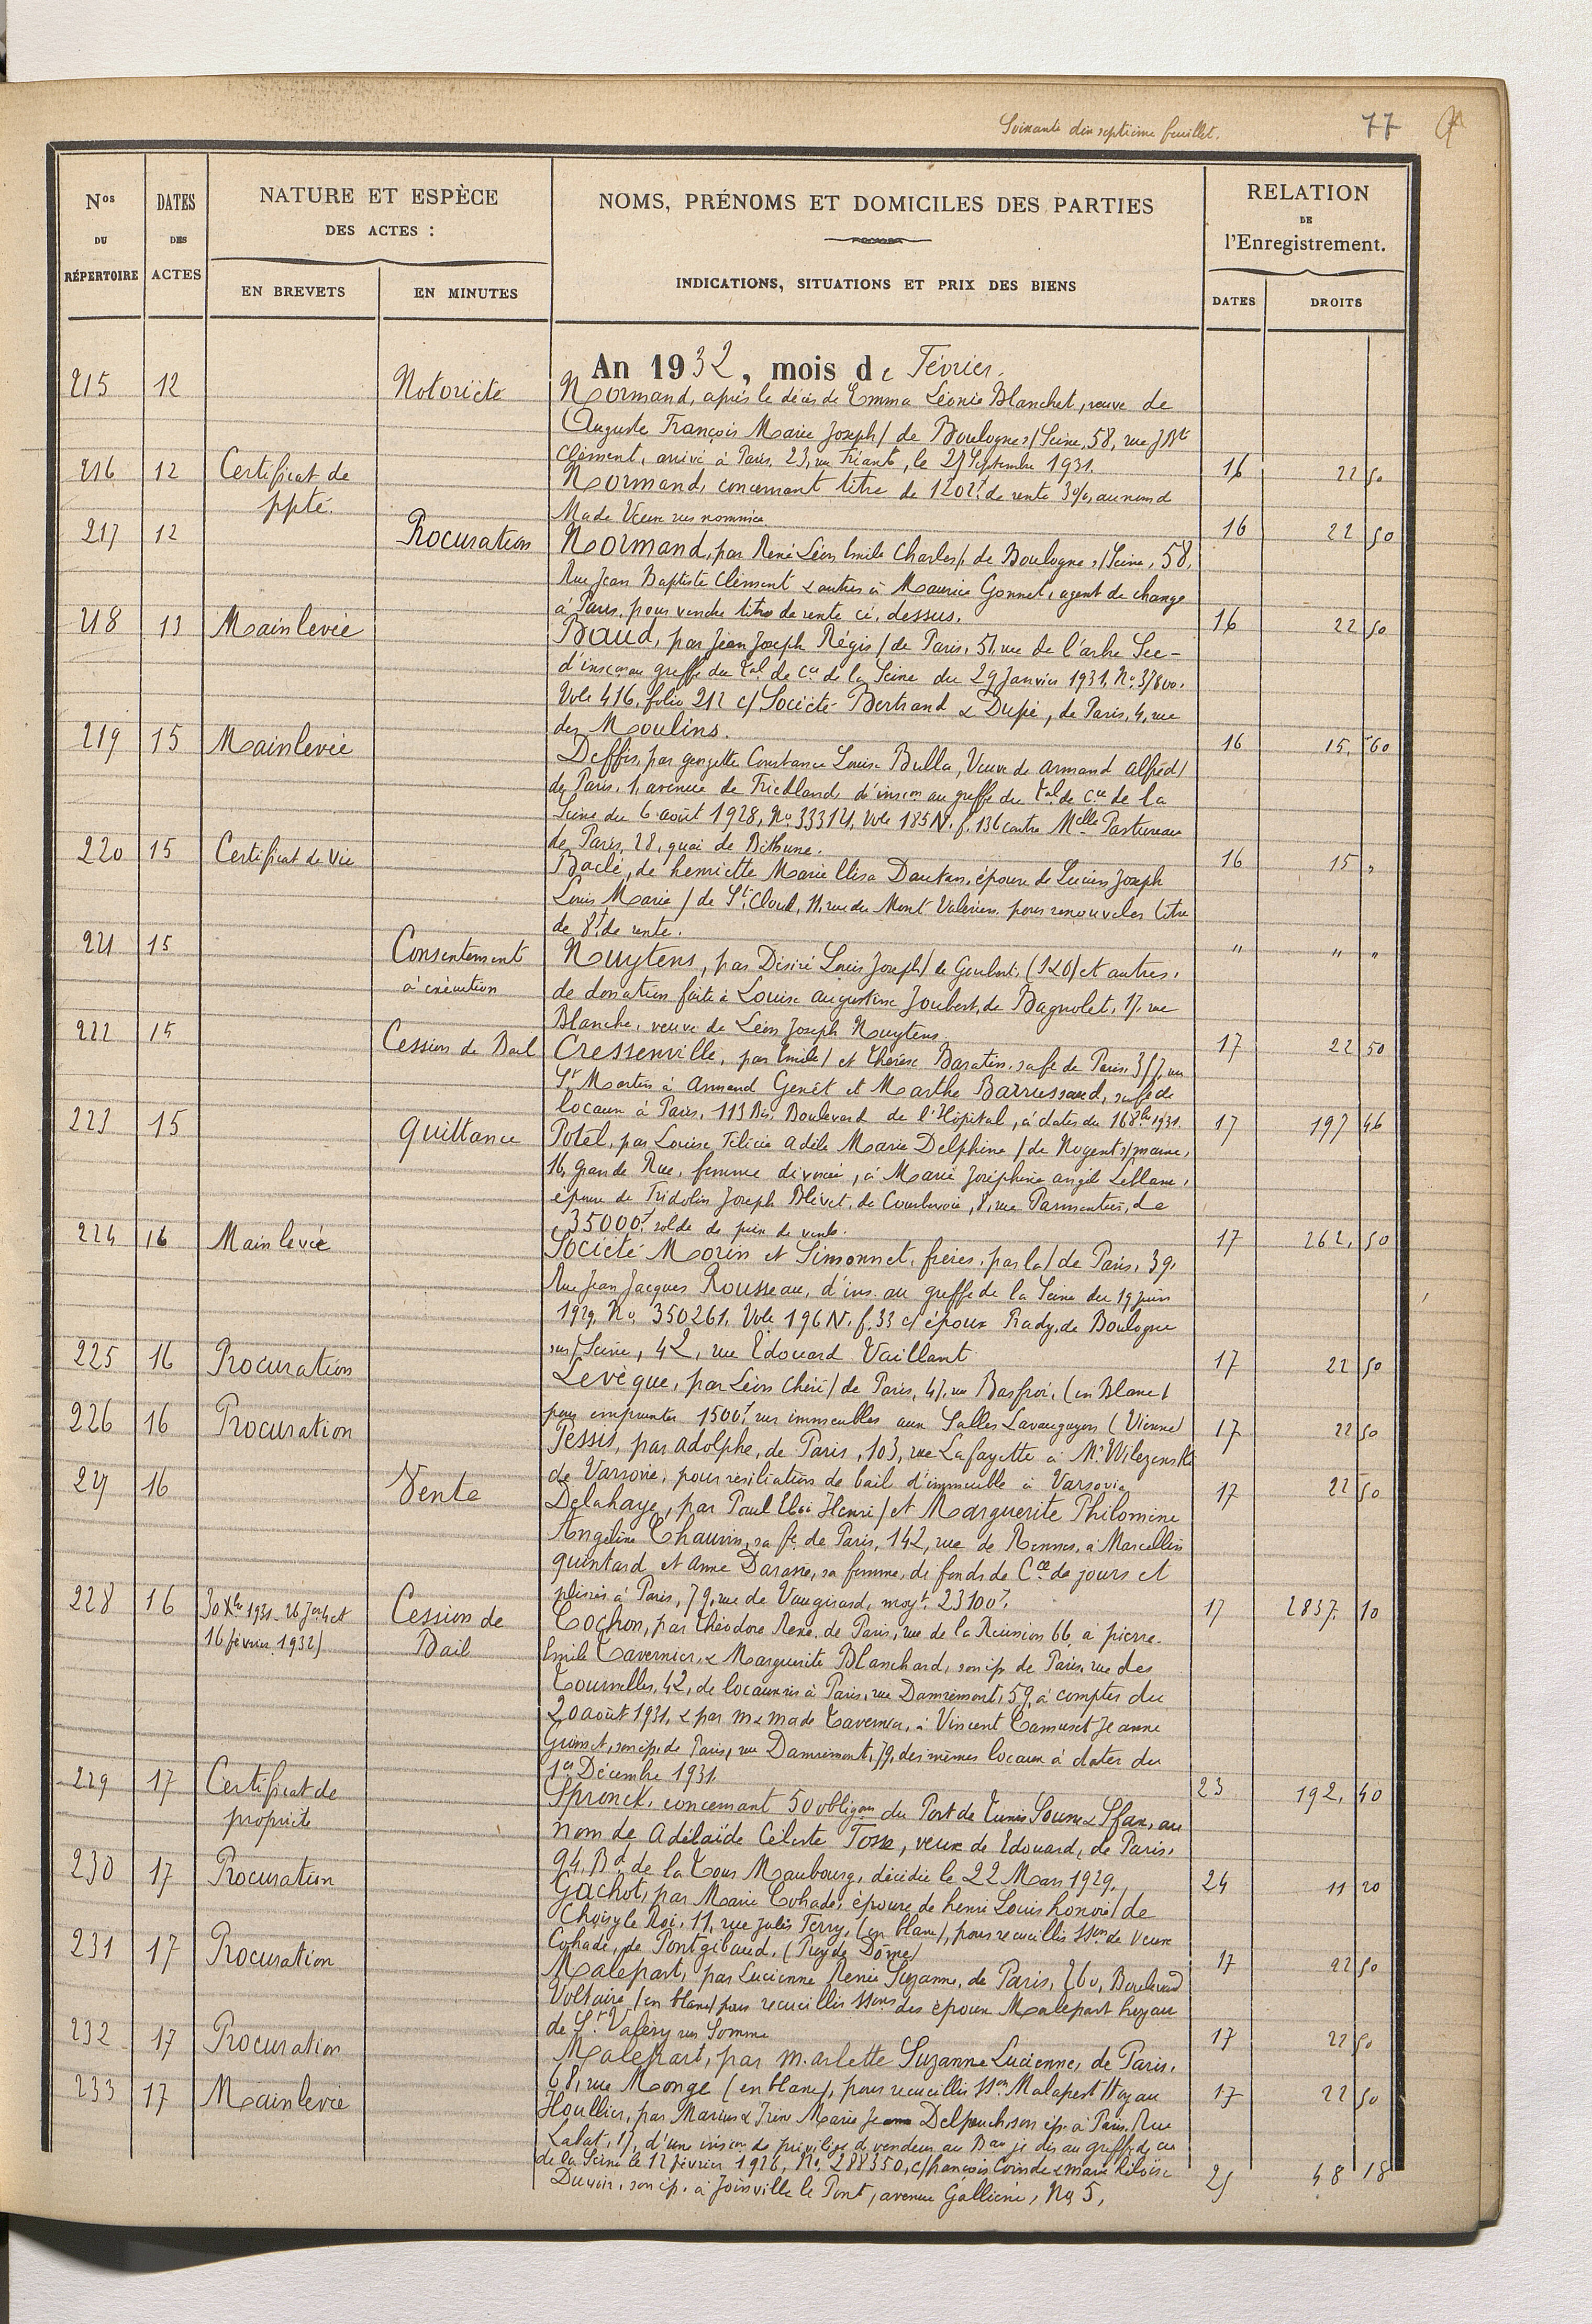 Soixante dix septième feuillet.
77
Nos DU RÉPERTOIRE
DATES DES ACTES
NATURE ET ESPÈCE DES ACTES :
EN BREVETS
EN MINUTES
NOMS, PRÉNOMS ET DOMICILES DES PARTIES
INDICATIONS, SITUATIONS ET PRIX DES BIENS
RELATION DE l'Enregistrement.
DATES
DROITS
An 1932, mois de Février.
215 12 Notoriété Normand, après le décès de Emma Léonie Blanchet, veuve de
Auguste François Marie Joseph/ de Boulogne s/Seine, 58, rue J Bte
Clément, arrivé à Paris, 23, rue Friant, le 21 Septembre 1931. 16 22 50
216 12 Certificat de ppté. Normand, concernant titre de 1202f de rente 3%, au nom de
Made Veuve sus nommée 16 22 50
217 12 Procuration Normand, par René Léon Emile Charles/, de Boulogne s/Seine, 58,
Rue Jean Baptiste Clément & autres à Maurice Gonnet, agent de change
à Paris, pour vendre titre de rente ci-dessus. 16 22 50
218 13 Mainlevée Baud, par Jean Joseph Régis/ de Paris, 51, rue de l'arbre Sec-
d'inscon au greffe du Tal de Cce de la Seine du 29 Janvier 1931, No 37800.
Vole 416, folio 212 c/ Société Bertrand & Dupé, de Paris, 4, rue
des Moulins. 16 15, 60
219 15 Mainlevée Deffis, par Georgette Constance Louise Bulla, Veuve de Armand Alfred/
de Paris, 1, avenue de Friedland, d'inscon au greffe du Tal de Cce de la
Seine du 6 août 1928, No 333121, Vole 185 N. f. 136 contre Melle Pastureau
de Paris, 28, quai de Béthune. 16 15 "
220 15 Certificat de Vie Baclé, de henriette Marie Elisa Dautan, épouse de Lucien Joseph
Louis Marie/ de St. Cloud, 11, rue du Mont Valérien, pour renouveler titre
de 8f de rente. " " "
221 15 Consentement à exécution Nuytens, par Désiré Louis Joseph/ de et autres,
de donation faite à Louise augustine Joubert, de Bagnolet, 17, rue
Blanche, veuve de Léon Joseph Nuytens 17 22 50
222 15 Cession de Bail Cressenville, par Emile/ et Thérèse Baratin, sa fe de Paris, 357, rue
St Martin à Armand Genêt et Marthe Barrussaud, sa fe de
locaux à Paris, 113 Bis, Boulevard de l'Hôpital, à dater du 16 8bre 1931. 17 197 46
223 15 Quittance Potel, par Louise Félicie Adèle Marie Delphine/ de Nogent s/marne,
16, Grande Rue, femme divorcée, à Marie Joséphine Angèle Leblanc,
épouse de Fridolin Joseph Blévet, de Courbevoie, 8, rue Parmentier, de
35000f solde de prix de vente. 17 262, 50
224 16 Mainlevée Société Morin et Simonnet, frères, par la/ de Paris, 39,
Rue Jean Jacques Rousseau, d'ins. au greffe de la Seine du 19 juin
1929, No 350261, Vole 196 N. f. 33 c/ époux Rady, de Boulogne
sur/Seine, 42, rue Edouard Vaillant 17 22 50
225 16 Procuration Levêque, par Léon Chéri/ de Paris, 47, rue Basfroi, (en Blanc)
pour emprunter 1500f sur immeubles aux Salles Lavauguyon (Vienne) 17 22 50
226 16 Procuration Pessis, par Adolphe, de Paris, 103, rue Lafayette à Mr
de Varsovie, pour résiliation de bail d'immeuble à Varsovie 17 22 50
227 16 Vente Delahaye, par Paul Eloi Henri/ et Marguerite Philomène
Angeline Chauvin, sa fe de Paris, 142, rue de Rennes, à Marcellin
Quintard et Anne Darasse, sa femme, de fonds de Cce de jours et
plissés à Paris, 79, rue de Vaugirard, moyt 23100f. 17 2837. 10
228 16 30 Xbre 1931 - 26 Janv et 16 février 1932) Cession de Bail Cochon, par Théodore René, de Paris, rue de la Réunion 66, à pierre-
Emile Tavernier, & Marguerite Blanchard, son ép. de Paris, rue des
Tournelles, 42, de locaux sis à Paris, rue Damrémont, 59, à compter du
20 août 1931, & par M & Made Tavernier, à Vincent Camuset Jeanne
Grimet, son ép. de Paris, rue Damrémont, 79, des mêmes locaux à dater du
1er Décembre 1931. 23 192, 40
229 17 Certificat de propriété Spronck, concernant 50 obligons du Port de Tunis Sousse & Sfax, au
nom de Adélaïde Céleste Fosse, veuve de Edouard, de Paris,
94, Bd de la Tour Maubourg, décédée le 22 Mars 1929. 24 11 20
230 17 Procuration Gachot, par Marie Cohade, épouse de henri Louis honoré/ de
Choisy le Roi, 11, rue Jules Ferry, (en blanc), pour recueillir ssion de veuve
Cohade, de Pontgibaud, (Puy de Dôme) 17 22 50
231 17 Procuration Malepart, par Lucienne Renée Suzanne, de Paris, 260, Boulevard
Voltaire (en blanc) pour recueillir ssions des époux Malepart hoyau
de St. Valéry sur Somme 17 22 50
232 17 Procuration Malepart, par M. Arlette Suzanne Lucienne, de Paris,
68, rue Monge (en blanc), pour recueillir ssion Malapert Hoyau 17 22 50
233 17 Mainlevée Houllier, par Marius & Irène Marie Jeanne Delpeuch son ép. à Paris, Rue
Labat, 17, d'une inscon de privilège de vendeur au greffe de
de la Seine le 12 février 1926, No 288350, c/ françois Coinde & marie héloïse
Duvoir, son ép. à Joinville le Pont, avenue Galliéni, No 5, 25 48 18